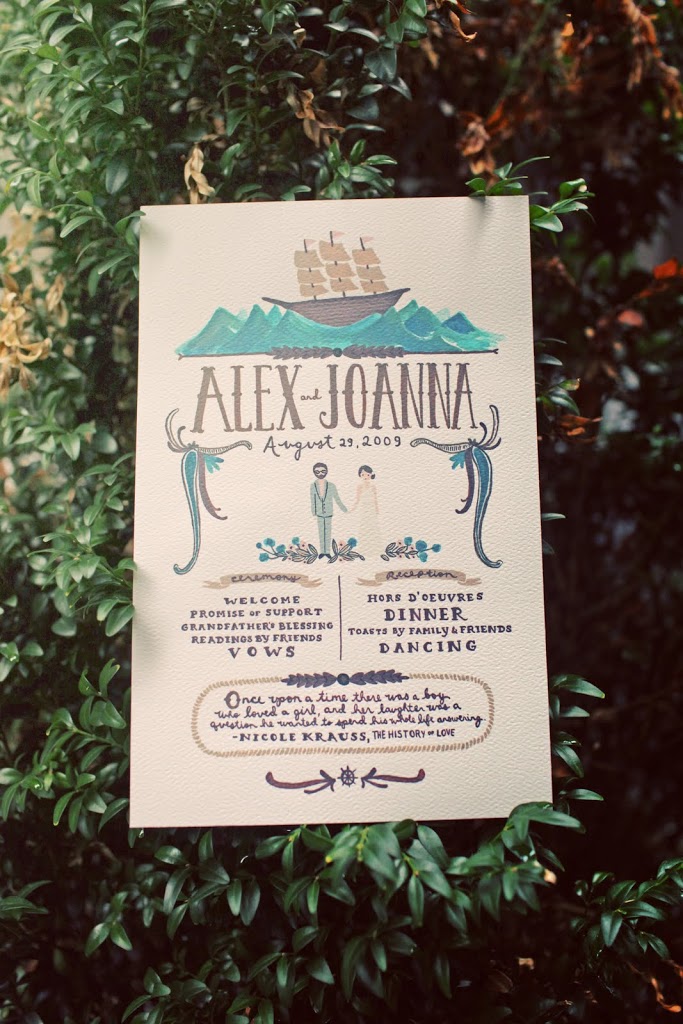 ALEX and JOANNA
August 29, 2009
Ceremony
WELCOME
PROMISE OF SUPPORT
GRANDFATHER'S BLESSING
READINGS BY FRIENDS
VOWS
Reception
HORS D'OEUVRES
DINNER
TOASTS BY FAMILY & FRIENDS
DANCING
Once upon a time there was a boy
who loved a girl, and her laughter was a
question he wanted to spend his whole life answering.
-NICOLE KRAUSS, THE HISTORY OF LOVE